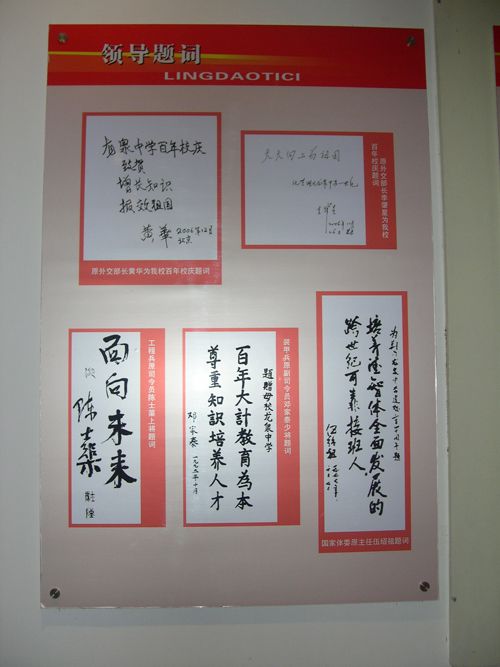 领导题词
LINGDAOTICI
龙泉中学百年校庆
致贺
增长知识
报效祖国
黄华 2006年12月
北京
原外交部长黄华为我校百年校庆题词
天天向上为祖国
原外交部长李肇星为我校
百年校庆题词
面向未来
陈士榘
工程兵原司令员陈士榘上将题词
题赠母校龙泉中学
百年大计教育为本
尊重知识培养人才
邓家泰
装甲兵原副司令员邓家泰少将题词
培养德智体全面发展的
跨世纪可靠接班人
伍绍祖
国家体委原主任伍绍祖题词